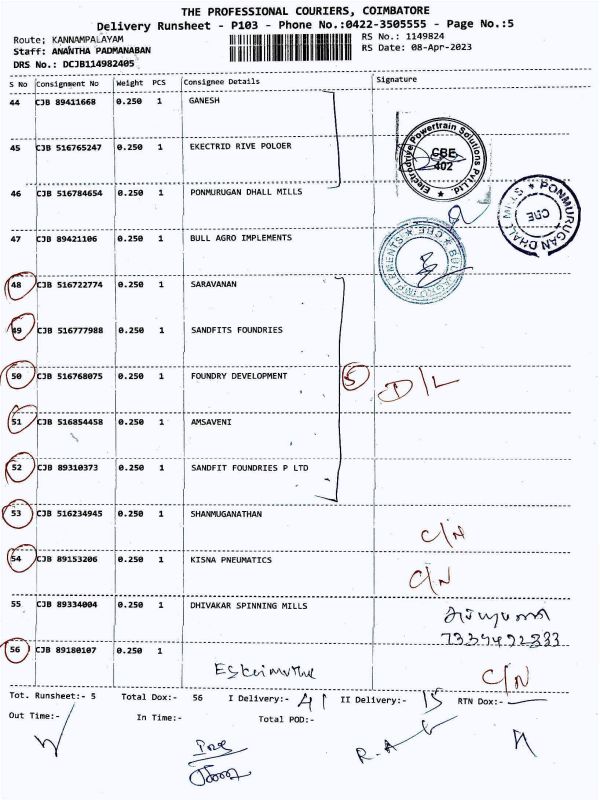 THE PROFESSIONAL COURIERS, COIMBATORE
Delivery Runsheet - P103 - Phone No.:0422-3505555 - Page No.:5
Route; KANNAMPALAYAM RS No.: 1149824
Staff: ANANTHA PADMANABAN RS Date: 08-Apr-2023
DRS No.: DCJB114982405
S No Consignment No Weight PCS Consignee Details Signature
44 CJB 89411668 0.250 1 GANESH
Electrodrive Powertrain Solutions Pvt.Ltd. ★ CBE 402
45 CJB 516765247 0.250 1 EKECTRID RIVE POLOER
46 CJB 516784654 0.250 1 PONMURUGAN DHALL MILLS
★ PONMURUGAN DHALL MILLS CBE
47 CJB 89421106 0.250 1 BULL AGRO IMPLEMENTS
★ BULL AGRO IMPLEMENTS ★ CBE
48 CJB 516722774 0.250 1 SARAVANAN
49 CJB 516777988 0.250 1 SANDFITS FOUNDRIES
50 CJB 516768075 0.250 1 FOUNDRY DEVELOPMENT 5 D/L
51 CJB 516854458 0.250 1 AMSAVENI
52 CJB 89310373 0.250 1 SANDFIT FOUNDRIES P LTD
53 CJB 516234945 0.250 1 SHANMUGANATHAN C/N
54 CJB 89153206 0.250 1 KISNA PNEUMATICS C/N
55 CJB 89334004 0.250 1 DHIVAKAR SPINNING MILLS
56 CJB 89180107 0.250 1 C/N
Tot. Runsheet:- 5 Total Dox:- 56 I Delivery:- 41 II Delivery:- 15 RTN Dox:-
Out Time:- In Time:- Total POD:-